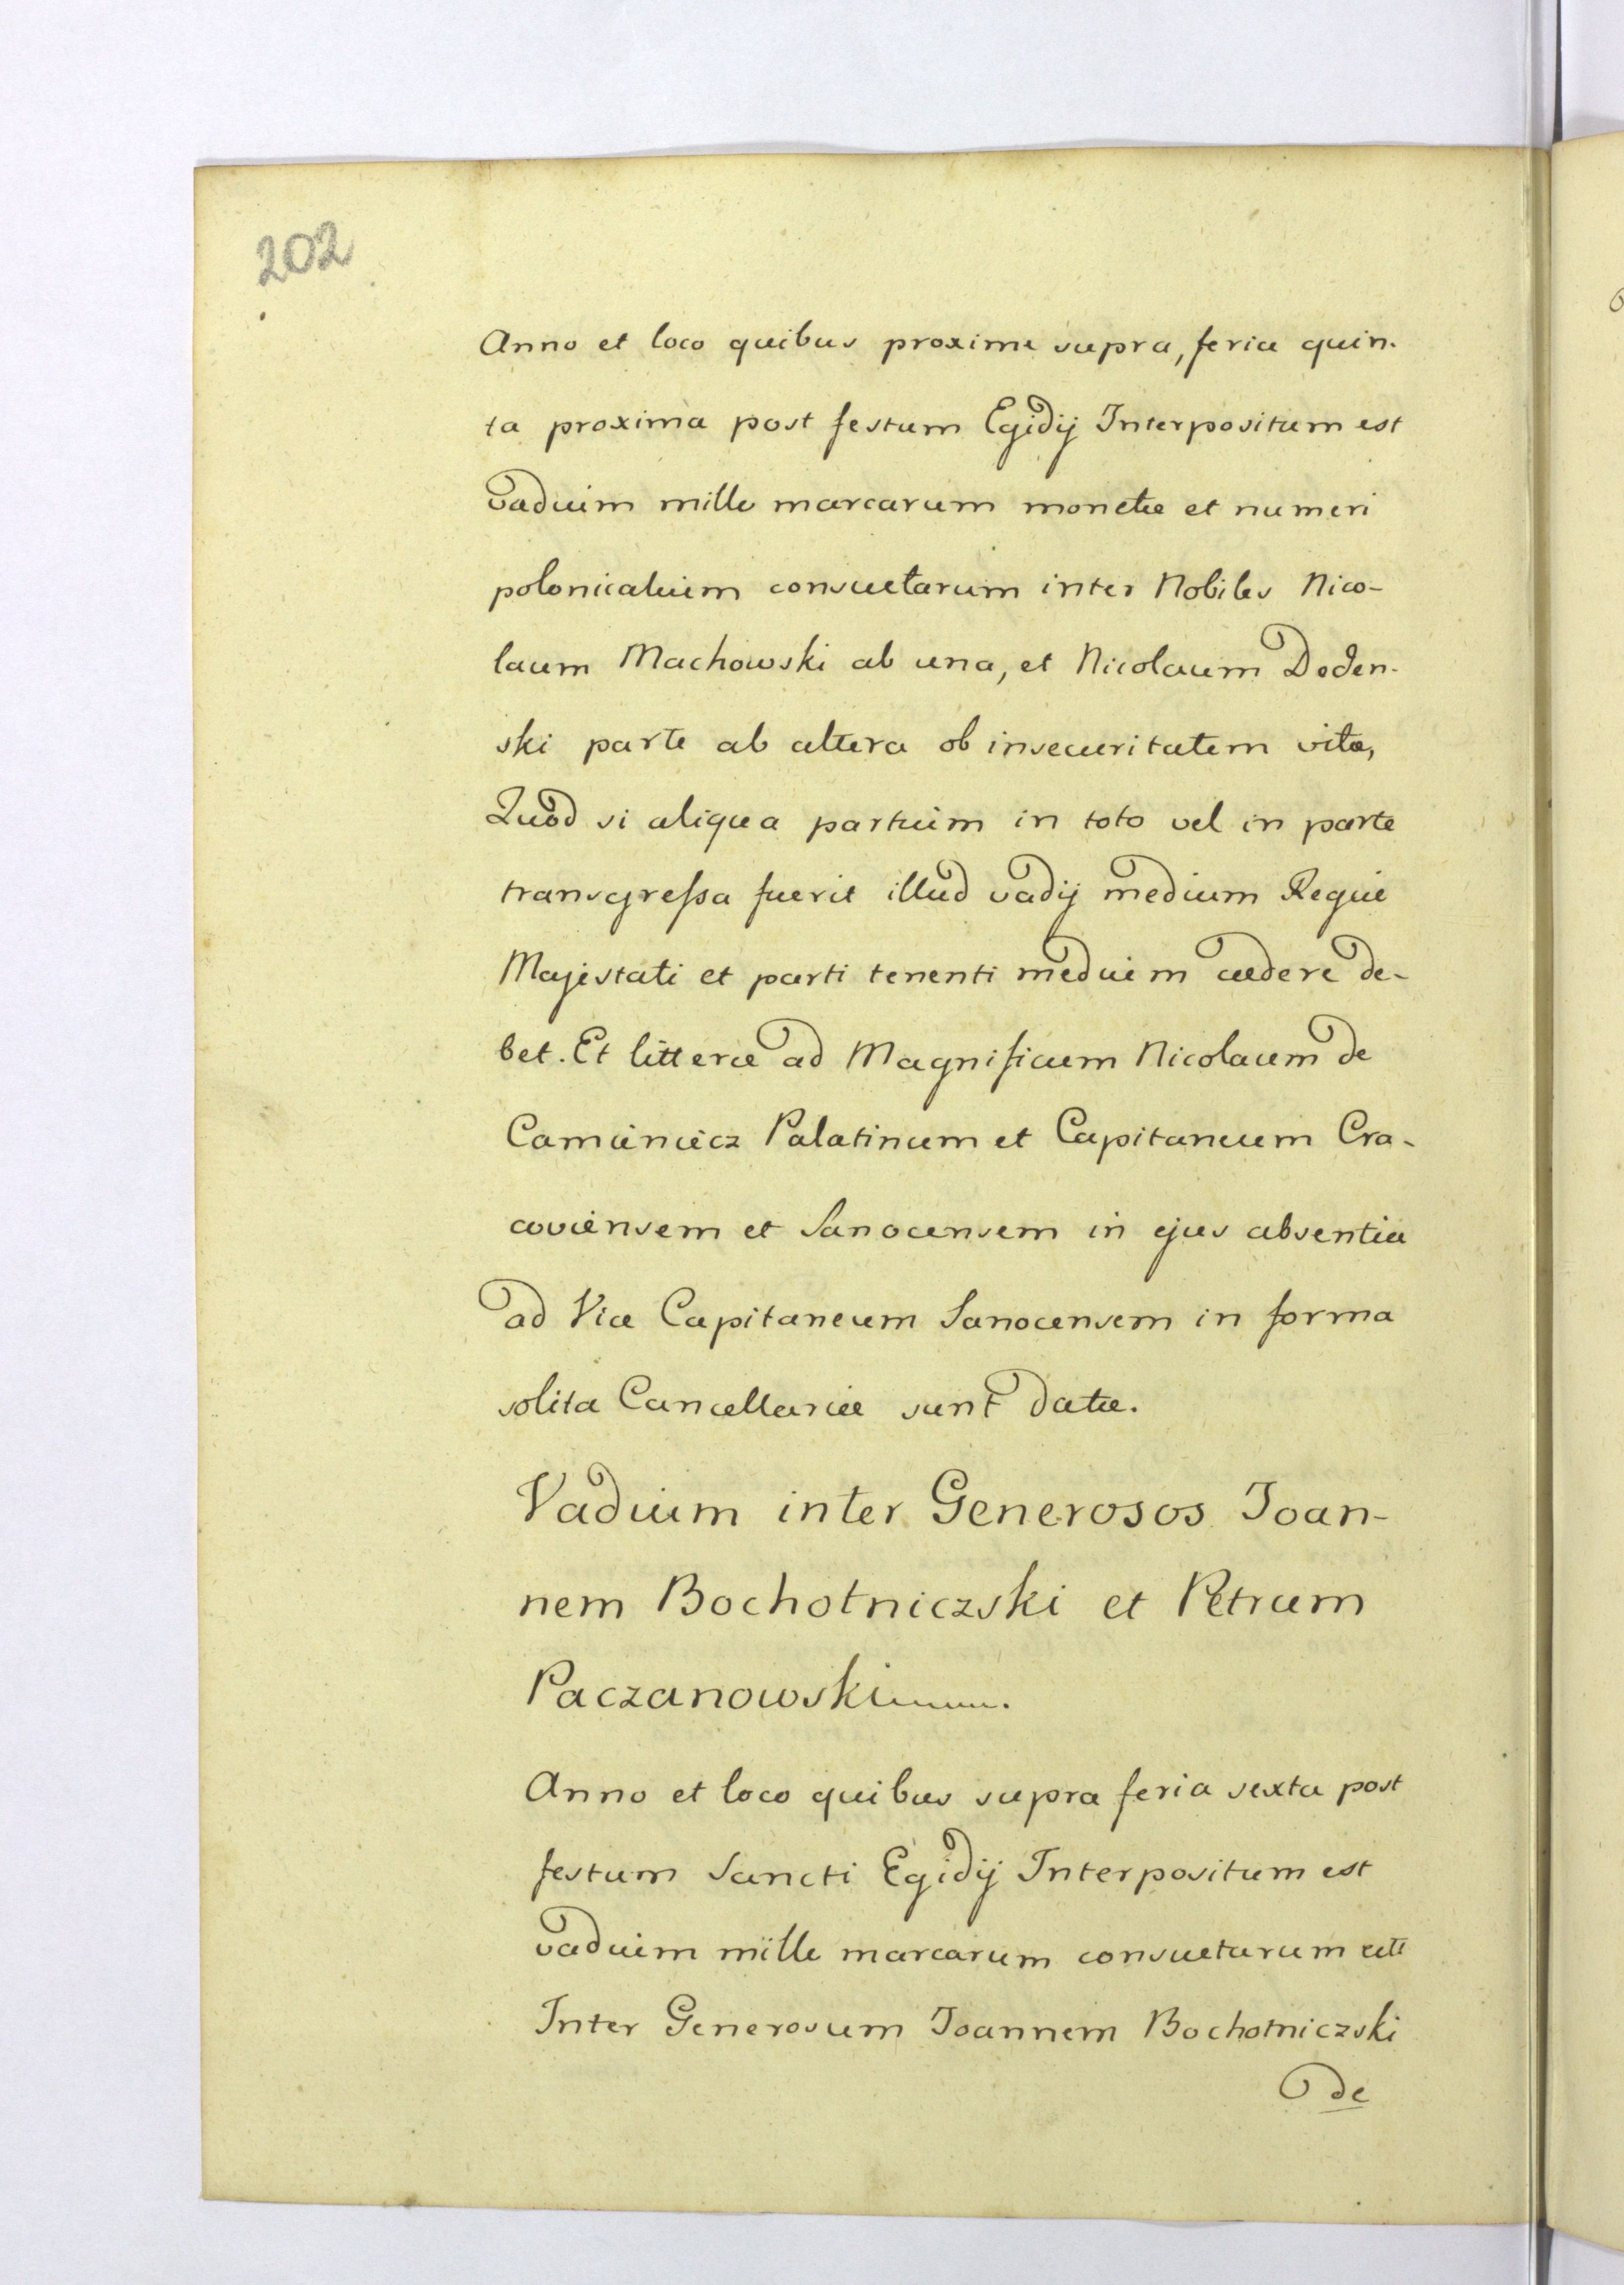 202
Anno et loco quibus proxime supra, feria quin-
ta proxima post festum Egidij Interpositum est
vadium mille marcarum monetæ et numeri
polonicalium consuetarum inter Nobiles Nico-
laum Machowski ab una, et Nicolaum Deden-
ski parte ab altera ob insecuritatem vitæ,
Quod si aliqua partium in toto vel in parte
transgreſsa fuerit illud vadij medium Regiæ
Majestati et parti tenenti medium cedere de-
bet. Et litteræ ad Magnificum Nicolaum de
Camieniecz Palatinum et Capitaneum Cra-
coviensem et Sanocensem in ejus absentia
ad Vice Capitaneum Sanocensem in forma
solita Cancellariæ sunt datæ.
Vadium inter Generosos Joan-
nem Bochotniczski et Petrum
Paczanowski.
Anno et loco quibus supra feria sexta post
festum Sancti Egidij Interpositum est
vadium mille marcarum consuetarum
Inter Generosum Joannem Bochotniczski
de